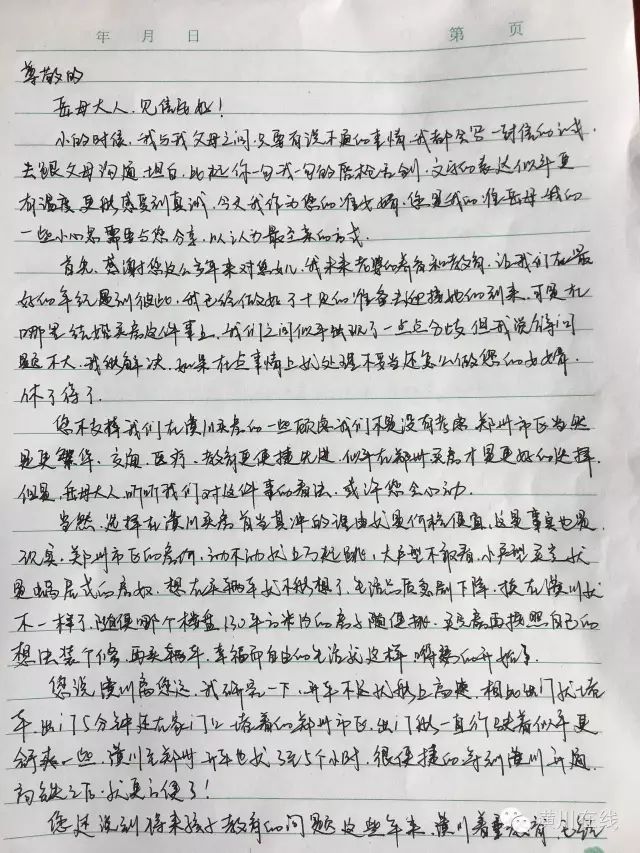 年 月 日 第 页
尊敬的
岳母大人，见信安好！
小的时候，我与我父母之间，只要有说不通的事情，我都会写一封信的方式，
去跟父母沟通，坦白，比起你一句我一句的唇枪舌剑，文字的表达似乎更
有温度，更能感受到真诚，今天我作为您的准女婿，您是我的准岳母，我的
一些小心思需要与您分享，以认为最至亲的方式。
首先，感谢您这么多年来对您女儿，我未来老婆的养育和教育，让我们在最
好的年纪遇到彼此，我已经做好了十足的准备去迎接她的到来，可是在
哪里结婚买房这件事上，我们之间似乎出现了一点点分歧，但我觉得问
题不大，我能解决，如果在这点事情上我处理不妥当还怎么做您的女婿，
休了得了。
您不支持我们在潢川买房的一些顾虑我们不是没有考虑，郑州市区当然
是更繁华，交通、医疗、教育更便捷先进，似乎在郑州买房才是更好的选择，
但是，岳母大人听听我们对这件事的看法，或许您会心动。
当然，选择在潢川买房首当其冲的理由就是价格便宜，这是事实也是
现实，郑州市区的房价，动不动就上万起跳，大户型不敢看，小户型买完就
是蜗居式的房奴，想在买辆车就不敢想了，生活品质急剧下降，换在潢川就
不一样了，随便哪个楼盘130平方米的房子随便挑，买完房再按照自己的
想法装个修，再买辆车，幸福而自由的生活就这样 的开始了。
您说潢川离您远，我研究一下，开车不远就能上高速，相比出门就堵
车，出门5分钟还在家门口堵着的郑州市区，出门能一直行驶着似乎更
舒爽一些，潢川至郑州开车也就3至5个小时，很便捷的，等到潢川开通
高铁之后，就更方便了！
您还说到将来孩子教育的问题，这些年来，潢川着重教育，已经
潢川在线